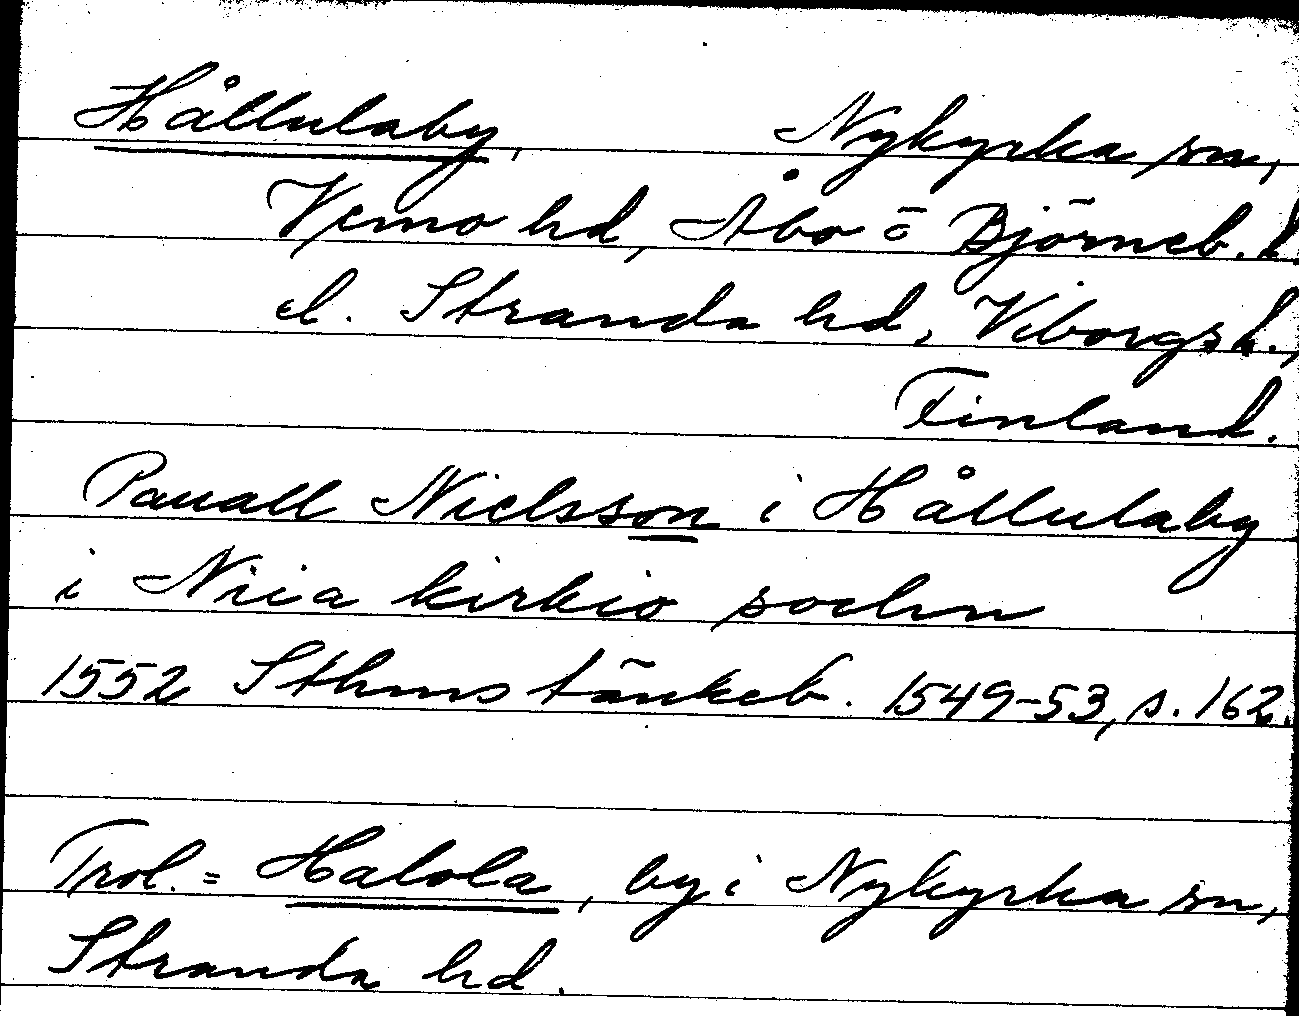 Hållulaby, Nykyrka sn,
Vemo hd, Åbo o Björneb. l.
el. Stranda hd, Viborgs l.,
Finland.
Pauall Nielsson i Hållulaby
i Niia kirkio sochn
1552 Sthms tänkeb. 1549-53, s. 162.
Trol. = Halola, by i Nykyrka sn,
Stranda hd.